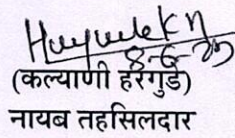 8-6-25
(कल्याणी हरगुडे)
नायब तहसिलदार